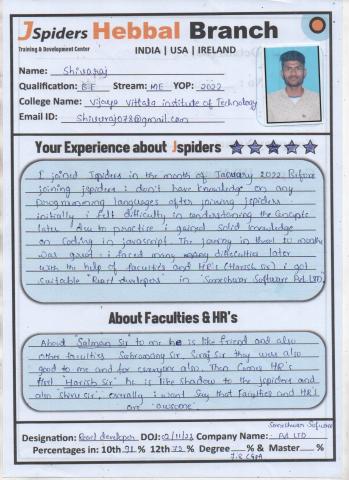 JSpiders Hebbal Branch
Training & Development Center
INDIA | USA | IRELAND
Name: Shivaraj
Qualification: BE Stream: ME YOP: 2022
College Name: Vijaya Vittala institute of Technology
Email ID: @gmail.com
Your Experience about Jspiders
I joined Jspiders in the month of January 2022. Before
joining jspiders i don't have knowledge on any
Programming languages after joining jspiders
initially i felt difficulty in understanding the concepts
later due to practice i gained solid knowledge
on coding in javascript. The journey in these 10 months
was great i faced many difficulties later
with the help of faculties and HR's (Harish sir) i got
suitable "React developer" in "Someshwar Software Pvt.LTD"
About Faculties & HR's
About "Salman Sir" to me he is like friend and also
other faculties Subramany Sir, Siraj Sir they was also
good to me and for everyone also. Then comes HR's
"Harish sir" he is like shadow to the jspiders and
also Shinu sir, overally i want say that faculties and HR'S
are "awesome"
Someshwar Software
Designation: React developer DOJ: 02/11/23 Company Name: Pvt LTD
Percentages in: 10th % 12th % Degree % & Master %
CGPA